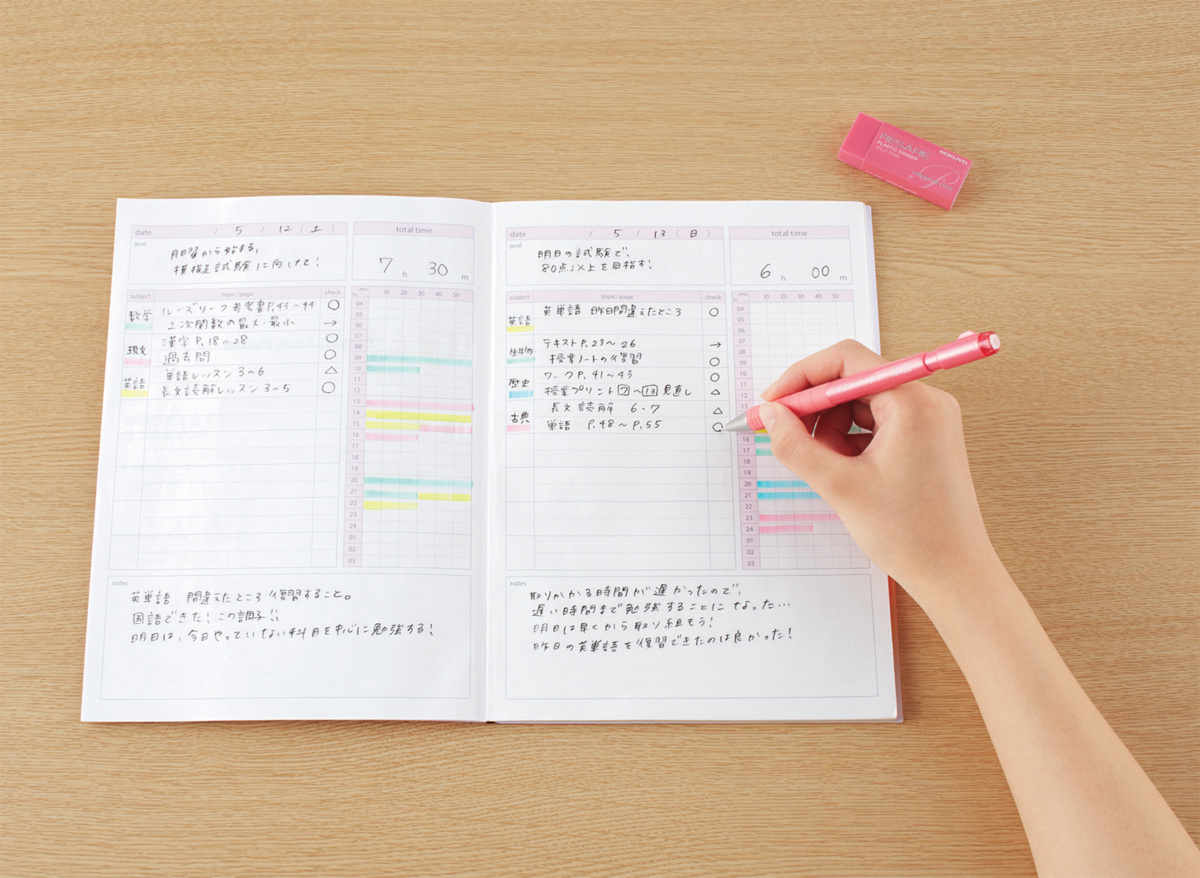 date / 5 / 12 (土)
goal
月曜から始まる、
模擬試験に向けて!
total time
7 h 30 m
subject topic/page check
数学 ルーズリーフ参考書P.43〜44 ○
2次関数の最大・最小 →
現文 漢字 P.18〜28 ○
過去問 ○
単語レッスン 3〜6 △
英語 長文読解レッスン 3〜5 ○
10 20 30 40 50
04
05
06
07
08
09
10
11
12
13
14
15
16
17
18
19
20
21
22
01
02
03
notes
英単語 間違えたところ復習すること。
国語できた!この調子!!
明日は、今日やっていない科目を中心に勉強する!
date / 5 / 13 (日)
goal
明日の試験で、
80点以上を目指す!
total time
6 h 00 m
subject topic/page check
英語 英単語 昨日間違えたところ ○
生物 テキストP.23〜26 →
授業ノートの復習 ○
歴史 ワークP.41〜43 ○
授業プリント7〜13見直し △
古典 長文読解 6・7 △
単語 P.48〜P.55 ○
10 20 30 40 50
04
05
06
07
08
09
10
11
12
13
14
15
16
17
18
19
20
21
22
23
24
01
02
03
notes
取りかかる時間が遅かったので、
遅い時間まで勉強することになった…
明日は早くから取り組もう!
昨日の英単語を復習できたのは良かった!
KOKUYO
RESARE
PLASTIC ERASER